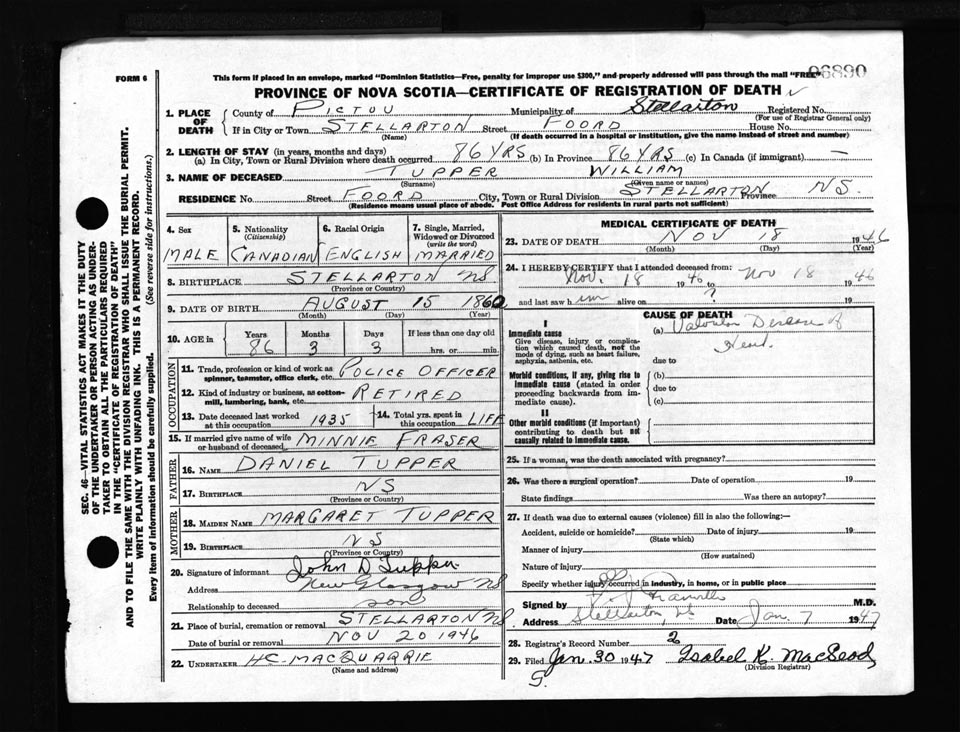 FORM 6
This form if placed in an envelope, marked "Dominion Statistics—Free, penalty for improper use $300," and properly addressed will pass through the mail "FREE"
06890
PROVINCE OF NOVA SCOTIA—CERTIFICATE OF REGISTRATION OF DEATH
1. PLACE OF DEATH
County of PICTOU Municipality of Stellarton Registered No.
(For use of Registrar General only)
If in City or Town STELLARTON Street FOORD House No.
(Name) (If death occurred in a hospital or institution, give the name instead of street and number)
2. LENGTH OF STAY (in years, months and days)
(a) In City, Town or Rural Division where death occurred 86 YRS (b) In Province 86 YRS (c) In Canada (if immigrant) —
3. NAME OF DECEASED TUPPER WILLIAM
(Surname) (Given name or names)
RESIDENCE No. Street FOORD City, Town or Rural Division STELLARTON Province NS.
(Residence means usual place of abode. Post Office Address for residents in rural parts not sufficient)
4. Sex
MALE
5. Nationality
(Citizenship)
CANADIAN
6. Racial Origin
ENGLISH
7. Single, Married, Widowed or Divorced
(write the word)
MARRIED
8. BIRTHPLACE STELLARTON NS
(Province or Country)
9. DATE OF BIRTH AUGUST 15 1860
(Month) (Day) (Year)
10. AGE in Years Months Days If less than one day old
86 3 3 hrs. or min.
OCCUPATION
11. Trade, profession or kind of work as spinner, teamster, office clerk, etc. POLICE OFFICER
12. Kind of industry or business, as cotton-mill, lumbering, bank, etc. RETIRED
13. Date deceased last worked at this occupation 1935
14. Total yrs. spent in this occupation LIFE
15. If married give name of wife or husband of deceased MINNIE FRASER
FATHER
16. NAME DANIEL TUPPER
17. BIRTHPLACE NS
(Province or Country)
MOTHER
18. MAIDEN NAME MARGARET TUPPER
19. BIRTHPLACE NS
(Province or Country)
20. Signature of informant John D Tupper
Address New Glasgow NS
Relationship to deceased son
21. Place of burial, cremation or removal STELLARTON NS
Date of burial or removal NOV 20 1946
22. UNDERTAKER H.C. MACQUARRIE
(Name and address)
MEDICAL CERTIFICATE OF DEATH
23. DATE OF DEATH NOV 18 1946
(Month) (Day) (Year)
24. I HEREBY CERTIFY that I attended deceased from:
Nov. 18 1946 to Nov 18 1946
and last saw him alive on ? 19
CAUSE OF DEATH
I
Immediate cause
Give disease, injury or complication which caused death, not the mode of dying, such as heart failure, asphyxia, asthenia, etc.
(a) Valvular Disease of
Heart.
due to
Morbid conditions, if any, giving rise to immediate cause (stated in order proceeding backwards from immediate cause).
(b)
due to
(c)
II
Other morbid conditions (if important) contributing to death but not causally related to immediate cause.
25. If a woman, was the death associated with pregnancy?
26. Was there a surgical operation? Date of operation 19
State findings Was there an autopsy?
27. If death was due to external causes (violence) fill in also the following:—
Accident, suicide or homicide? Date of injury 19
(State which)
Manner of injury
(How sustained)
Nature of injury
Specify whether injury occurred in industry, in home, or in public place
Signed by M.D.
Address Stellarton, NS Date Jan. 7 1947
28. Registrar's Record Number 2
29. Filed Jan. 30 1947 Isobel K. MacLeod
(Division Registrar)
SEC. 46—VITAL STATISTICS ACT MAKES IT THE DUTY
OF THE UNDERTAKER OR PERSON ACTING AS UNDER-
TAKER TO OBTAIN ALL THE PARTICULARS REQUIRED
IN THE "CERTIFICATE OF REGISTRATION OF DEATH"
AND TO FILE THE SAME WITH THE DIVISION REGISTRAR WHO SHALL ISSUE THE BURIAL PERMIT.
WRITE PLAINLY WITH UNFADING INK. THIS IS A PERMANENT RECORD.
Every item of information should be carefully supplied. (See reverse side for instructions.)